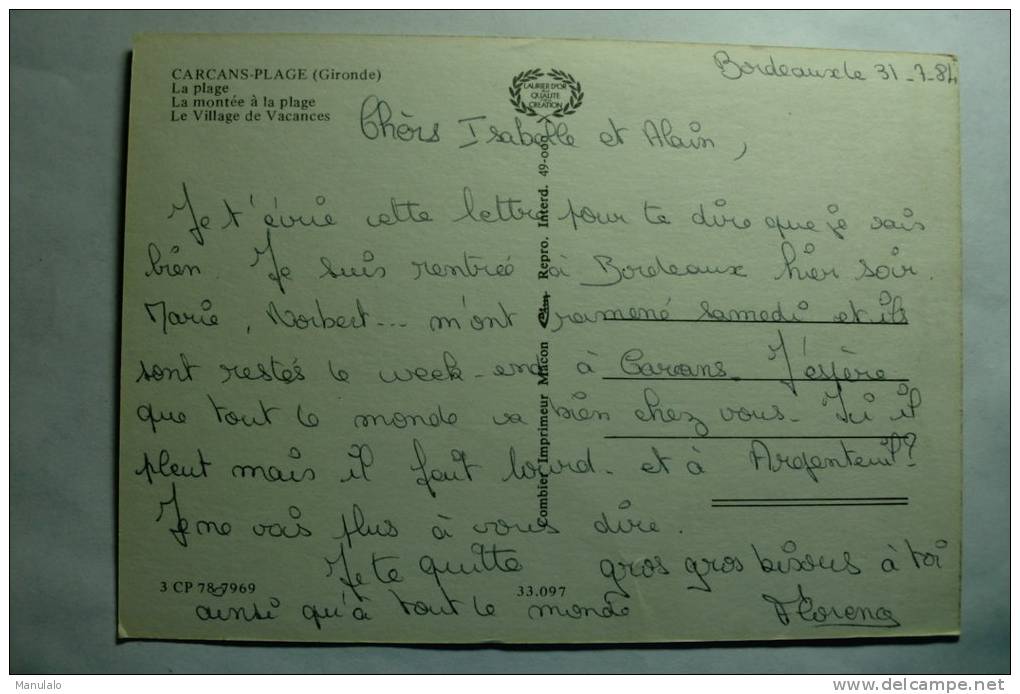 CARCANS-PLAGE (Gironde)
La plage
La montée à la plage
Le Village de Vacances
LAURIER D'OR
DE
QUALITÉ
CRÉATION
Bordeaux le 31-7-84
Chèrs Isabelle et Alain,
Je t'évrie cette lettre pour te dire que je vais
bien. Je suis rentrée à Bordeaux hier soir.
Marie, Norbert... m'ont ramené samedi et ils
sont restés le week-end à Carcans. J'espère
que tout le monde va bien chez vous. Ici il
pleut mais il fait lourd. et à Argenteuil?
Je ne vais plus à vous dire.
Je te quitte gros gros bisous à toi
ainsi qu'à tout le monde Florence
Combier Imprimeur Macon Repro. Interd. 49-00
3 CP 78-7969
33.097
Manulalo
www.delcampe.net